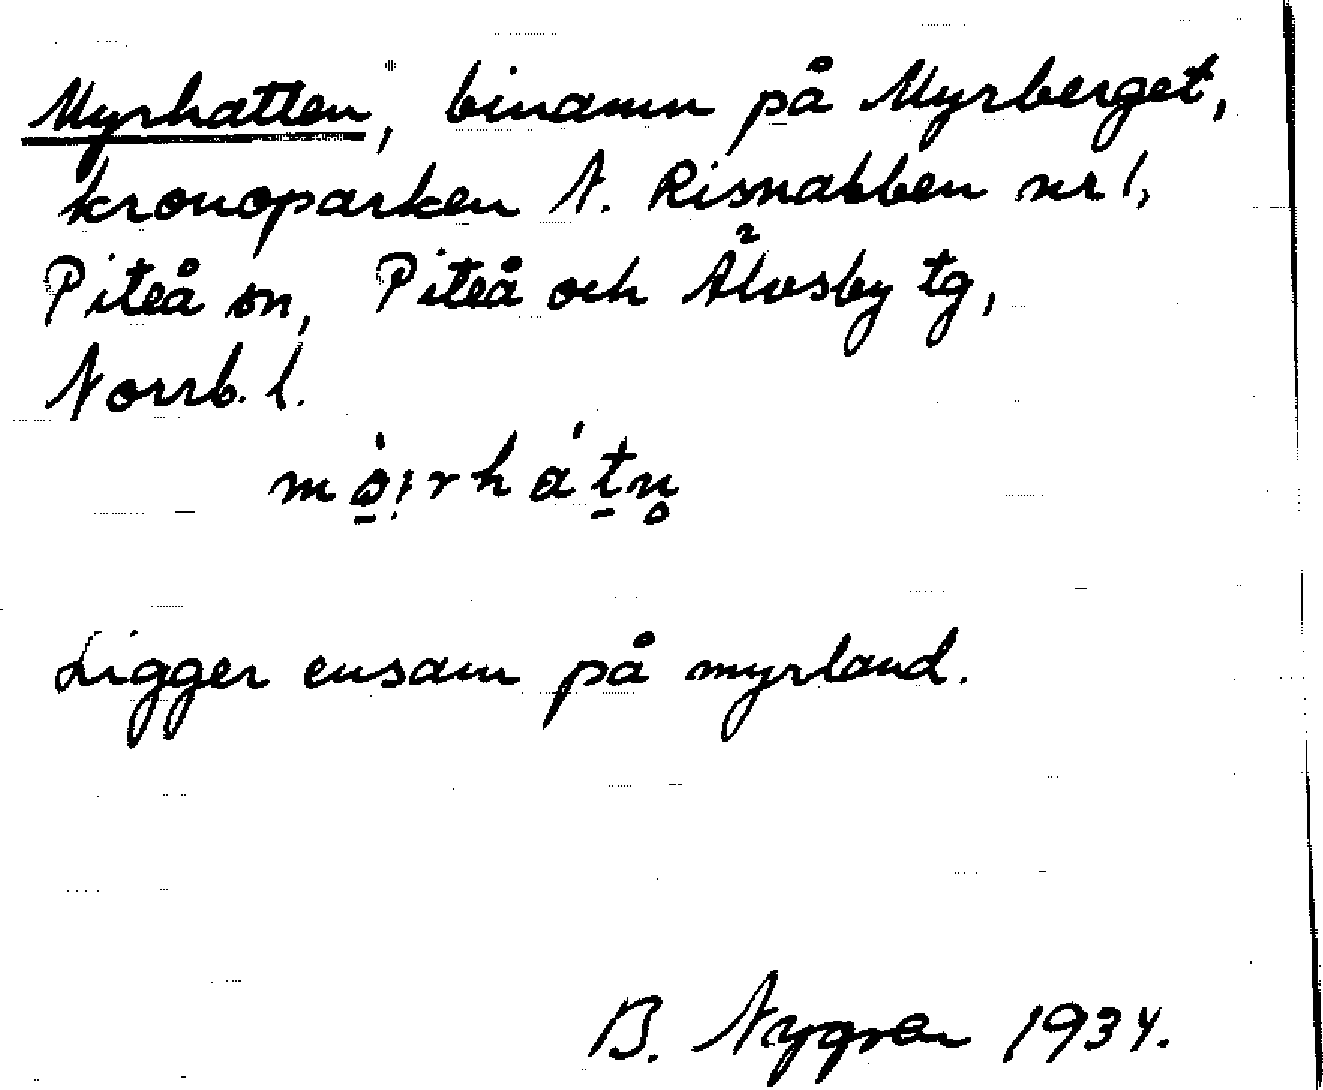 Myrhatten, binamn på Myrberget,
kronoparken N. Risnabben nr 1,
Piteå sn, Piteå och Älvsby tg,
Norrb. l.
Ligger ensam på myrland.
B. Nygren 1934.